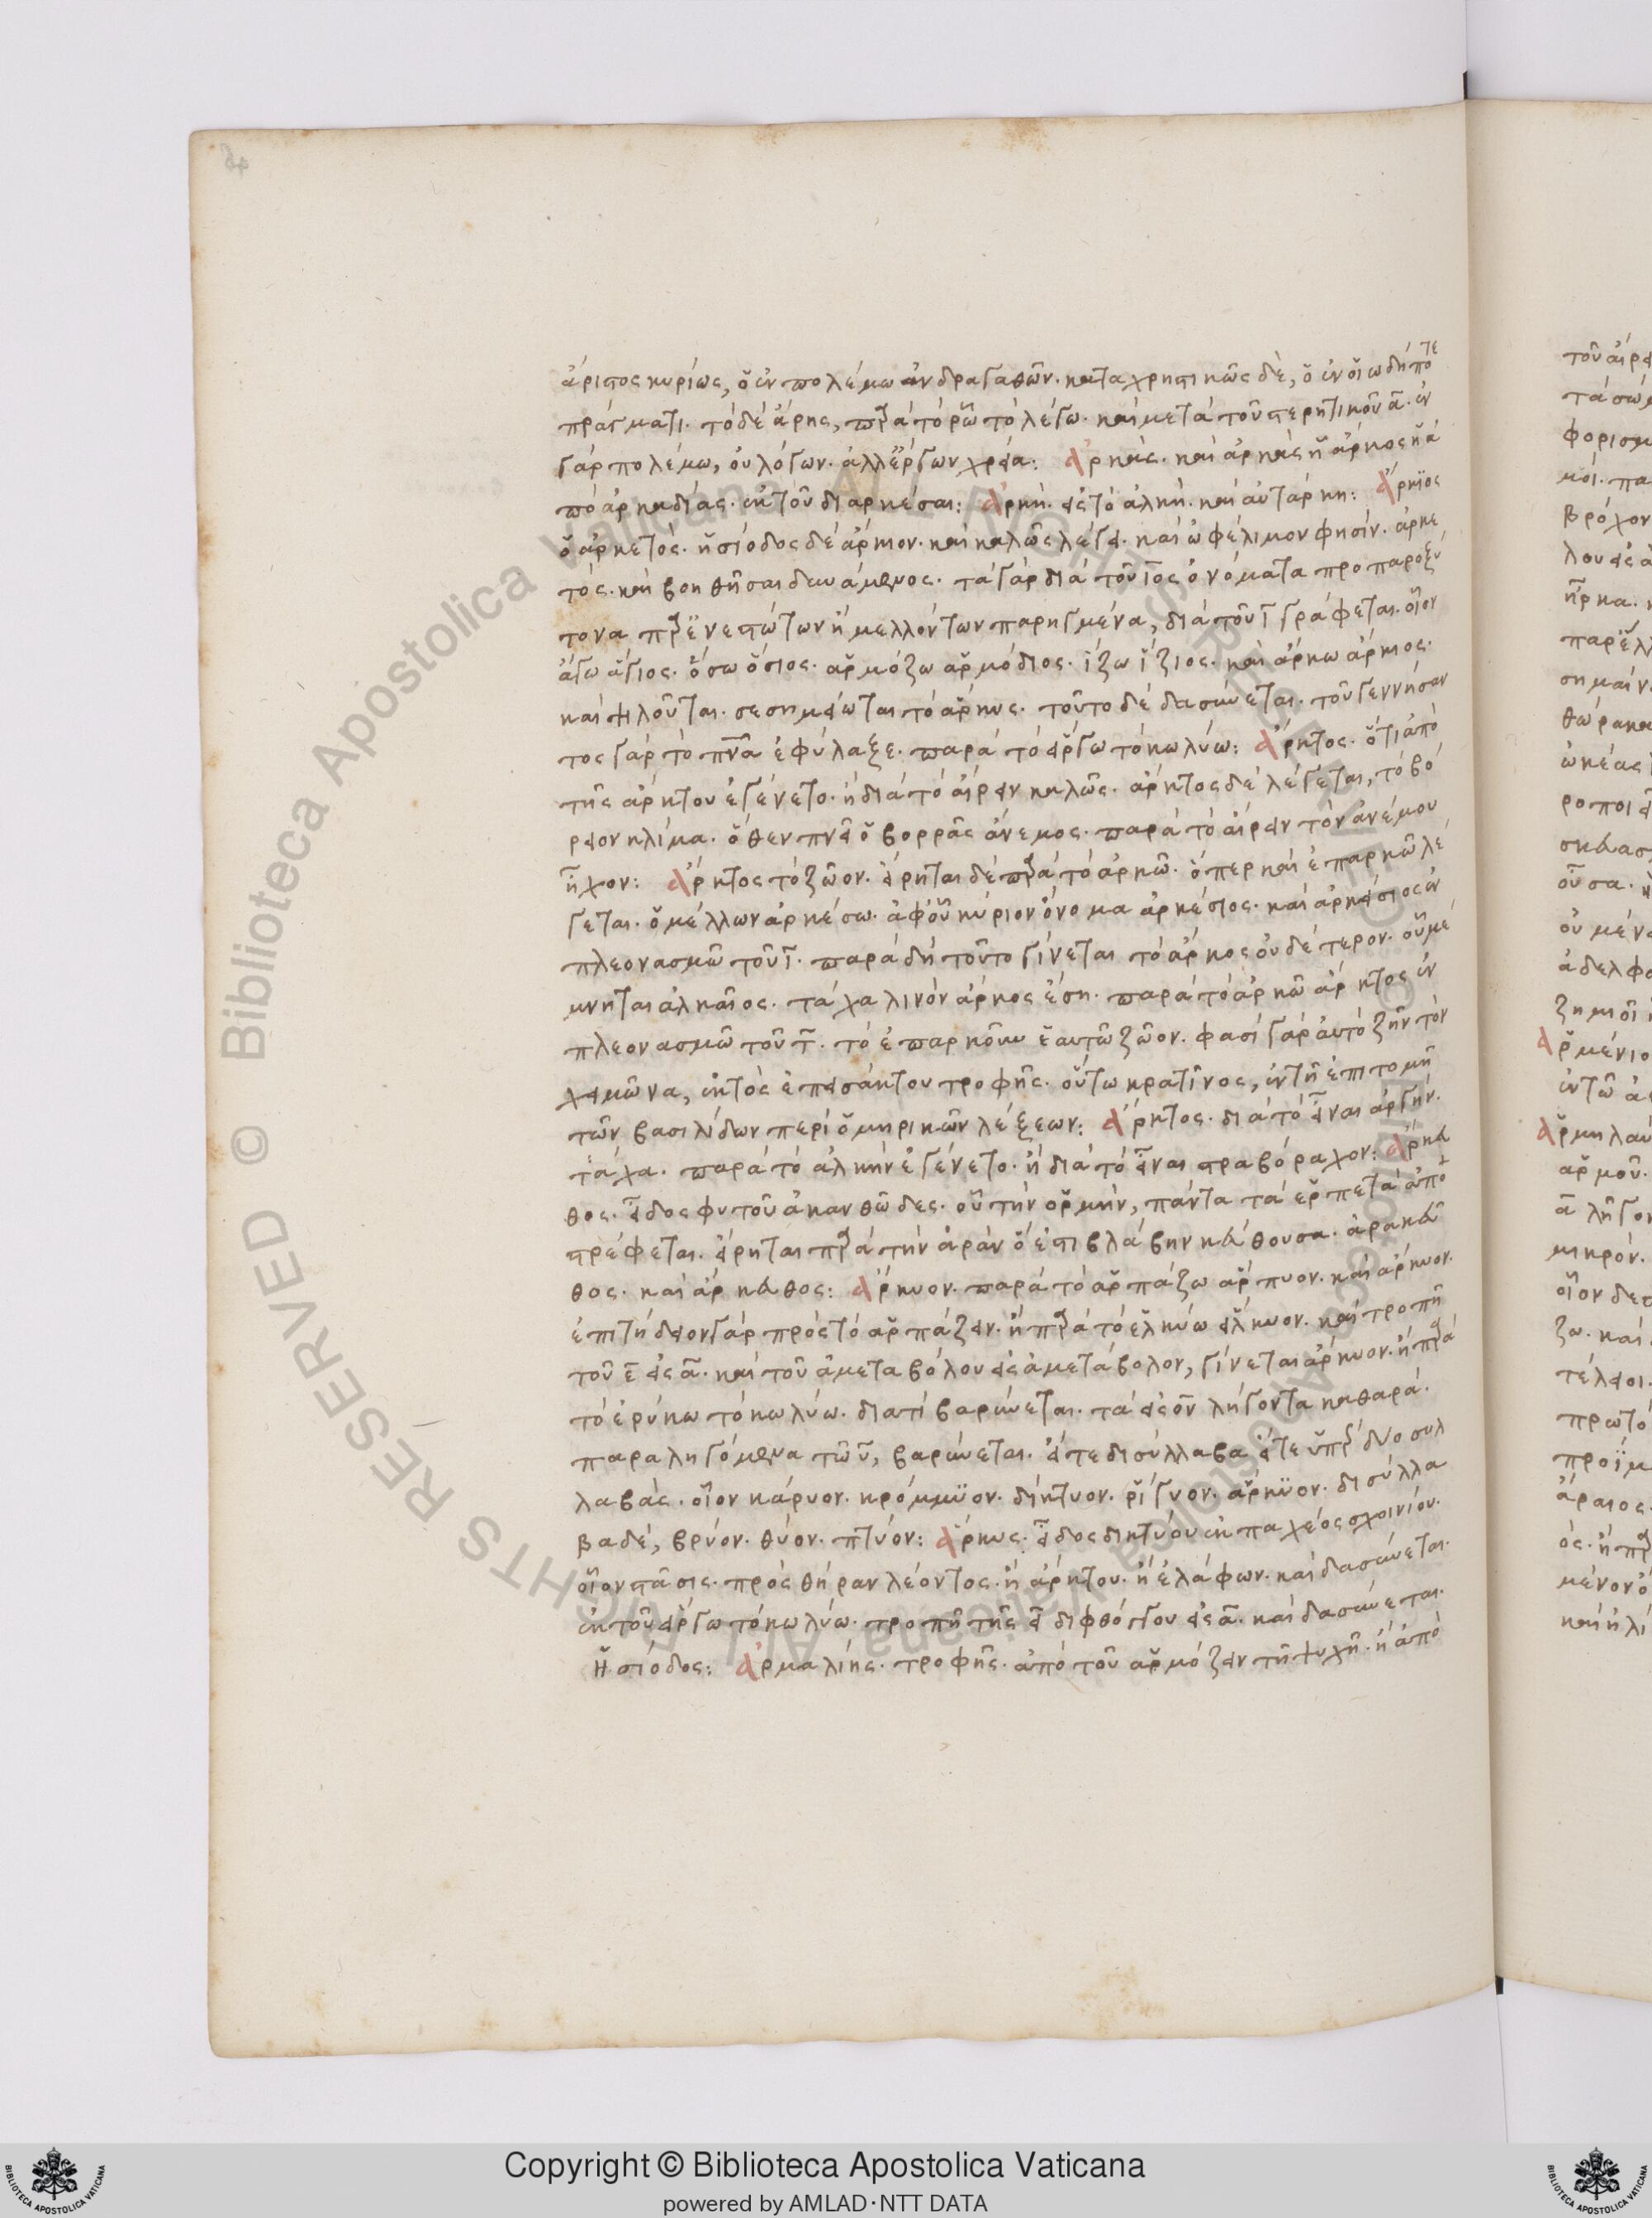 ἄριστος κυρίως, ὁ ἐν πολέμω ἀνδραγαθῶν. καταχρηστικῶς δὲ, ὁ ἐν οἵω δήποτε
πράγματι. τὸ δὲ ἄρης, παρὰ τὸ ρῶ τὸ λέγω. καὶ μετὰ τοῦ στερητικοῦ α. ἐν
γὰρ πολέμω, οὐ λόγων. ἀλλ' ἔργων χρεία: Ἀρκάς. καὶ ἀρκὰς ἢ ἄρκος ἢ ἀ
πὸ ἀρκαδίας. ἐκ τοῦ διαρκέσαι: Ἀρκὴ. εἰς τὸ ἀλκὴ. καὶ αὐτάρκη: Ἄρκϊος
ὁ ἀρκετός. ἡσίοδος δὲ ἄρκιον. καὶ καλῶς λέγει. καὶ ὠφέλιμον φησίν. ἀρκε
τός. καὶ βοηθῆσαι δυνάμενος. τὰ γὰρ διὰ τοῦ ιος ὀνόματα προπαροξύ
τονα παρ' ἐνεστώτων ἢ μελλόντων παρηγμένα, διὰ τοῦ ι γράφεται. οἷον
ἄγω ἅγιος. ὅσω ὅσιος. ἁρμόζω ἁρμόδιος. ἵζω ἵζιος. καὶ ἄρκω ἄρκιος.
καὶ ψιλοῦται. σεσημείωται τὸ ἄρκυς. τοῦτο δὲ δασύνεται. τοῦ γεννήσαν
τος γὰρ τὸ πνα ἐφύλαξε. παρὰ τὸ εἵργω τὸ κωλύω: Ἄρκτος. ὅτι ἀπὸ
τῆς ἄρκτου ἐγένετο. ἢ διὰ τὸ αἴρειν καλῶς. ἄρκτος δὲ λέγεται, τὸ βό
ρειον κλίμα. ὅθεν πνεῖ ὁ βορρᾶς ἄνεμος. παρὰ τὸ αἴρειν τὸν ἀνέμου
ἦχον: Ἄρκτος τὸ ζῶον. εἴρηται δὲ παρὰ τὸ ἀρκῶ. ὅπερ καὶ ἐπαρκῶ λέ
γεται. ὁ μέλλων ἀρκέσω. ἀφ' οὗ κύριον ὄνομα ἀρκέσιος. καὶ ἀρκείσιος ἐν
πλεονασμῶ τοῦ ι. παρὰ δὴ τοῦτο γίνεται τὸ ἄρκος οὐδέτερον. οὗ μέ
μνηται ἀλκαῖος. τάχα λινὸν ἄρκος ἔση. παρὰ τὸ ἀρκῶ ἄρκτος ἐν
πλεονασμῶ τοῦ τ. τὸ ἐπαρκοῦν ἑαυτῶ ζῶον. φασὶ γὰρ αὐτὸ ζῆν τὸν
χειμῶνα, ἐκτὸς ἐπεισάκτου τροφῆς. οὕτω κρατῖνος, ἐν τῆ ἐπιτομῆ
τῶν βασιλίδων περὶ ὁμηρικῶν λέξεων: Ἄρκτος. διὰ τὸ εἶναι ἀργήν.
τάχα. παρὰ τὸ ἀλκὴν ἐγένετο. ἢ διὰ τὸ εἶναι στραβόραχον: Ἄρκει
θος. εἶδος φυτοῦ ἀκανθῶδες. οὗ τὴν ὀρμὴν, πάντα τὰ ἑρπετὰ ἀπο
στρέφεται. εἴρηται παρὰ τὴν ἀρὰν ὅ ἐστι βλάβην κείθουσα. ἀρακεῖ
θος. καὶ ἄρκειθος: Ἄρκυον. παρὰ τὸ ἁρπάζω ἅρπυον. καὶ ἄρκυον.
ἐπιτήδειον γὰρ πρὸς τὸ ἁρπάζειν. ἢ παρὰ τὸ ἑλκύω ἕλκυον. καὶ τροπῆ
τοῦ ε εἰς α. καὶ τοῦ ἀμεταβόλου εἰς ἀμετάβολον, γίνεται ἄρκυον. ἢ παρὰ
τὸ ἐρύκω τὸ κωλύω. διατί βαρύνεται. τὰ εἰς ον λήγοντα καθαρά.
παραληγόμενα τῶ υ, βαρύνεται. εἴτε δισύλλαβα εἴτε ὑπὲρ δύο συλ
λαβάς. οἷον κάρυον. κρόμμϋον. δίκτυον. ῥίγυον. ἄρκϋον. δισύλλα
βα δέ, βρύον. θύον. πτύον: Ἄρκυς. εἶδος δικτύου ἐκ παχέος σχοινίου.
οἷον στᾶσις. πρὸς θήραν λέοντος. ἢ ἄρκτου. ἢ ἐλάφων. καὶ δασύνεται.
ἐκ τοῦ εἵργω τὸ κωλύω. τροπῆ τῆς ει διφθόγγου εἰς α. καὶ δασύνεται.
Ἡσίοδος: Ἀρμαλιῆς. τροφῆς. ἀπὸ τοῦ ἁρμόζειν τῆ ψυχῆ. ἢ ἀπὸ
Copyright © Biblioteca Apostolica Vaticana
powered by AMLAD·NTT DATA